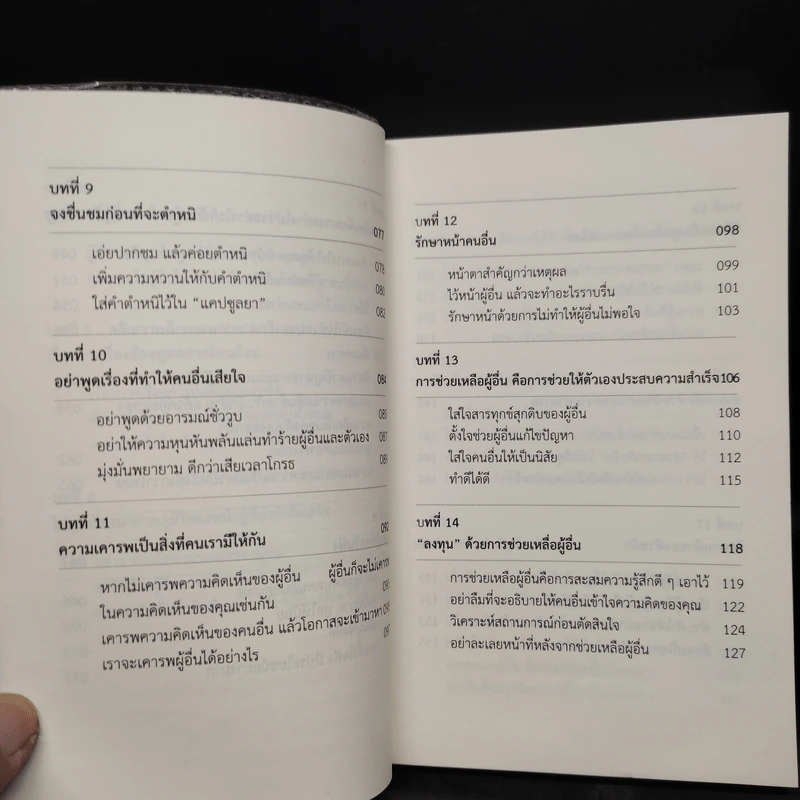 บทที่ 9
จงชื่นชมก่อนที่จะตำหนิ 077
เอ่ยปากชม แล้วค่อยตำหนิ 078
เพิ่มความหวานให้กับคำตำหนิ 080
ใส่คำตำหนิไว้ใน “แคปซูลยา” 082
บทที่ 10
อย่าพูดเรื่องที่ทำให้คนอื่นเสียใจ 084
อย่าพูดด้วยอารมณ์ชั่ววูบ 085
อย่าให้ความหุนหันพลันแล่นทำร้ายผู้อื่นและตัวเอง 087
มุ่งมั่นพยายาม ดีกว่าเสียเวลาโกรธ
บทที่ 11
ความเคารพเป็นสิ่งที่คนเรามีให้กัน
หากไม่เคารพความคิดเห็นของผู้อื่น ผู้อื่นก็จะไม่เคารพ
ในความคิดเห็นของคุณเช่นกัน
เคารพความคิดเห็นของคนอื่น แล้วโอกาสจะเข้ามาหา
เราจะเคารพผู้อื่นได้อย่างไร
บทที่ 12
รักษาหน้าคนอื่น 098
หน้าตาสำคัญกว่าเหตุผล 099
ไว้หน้าผู้อื่น แล้วจะทำอะไรราบรื่น 101
รักษาหน้าด้วยการไม่ทำให้ผู้อื่นไม่พอใจ 103
บทที่ 13
การช่วยเหลือผู้อื่น คือการช่วยให้ตัวเองประสบความสำเร็จ 106
ใส่ใจสารทุกข์สุกดิบของผู้อื่น 108
ตั้งใจช่วยผู้อื่นแก้ไขปัญหา 110
ใส่ใจคนอื่นให้เป็นนิสัย 112
ทำดีได้ดี 115
บทที่ 14
“ลงทุน” ด้วยการช่วยเหลือผู้อื่น 118
การช่วยเหลือผู้อื่นคือการสะสมความรู้สึกดี ๆ เอาไว้ 119
อย่าลืมที่จะอธิบายให้คนอื่นเข้าใจความคิดของคุณ 122
วิเคราะห์สถานการณ์ก่อนตัดสินใจ 124
อย่าละเลยหน้าที่หลังจากช่วยเหลือผู้อื่น 127